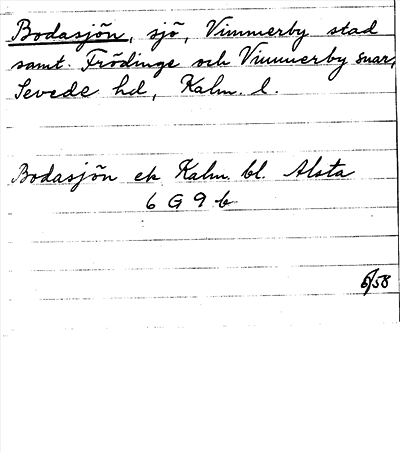 Bodasjön, sjö, Vimmerby stad
samt. Frödinge och Vimmerby snar,
Sevede hd, Kalm. l.
Bodasjön ek Kalm. bl. Alsta
6 G 9 b
6/58